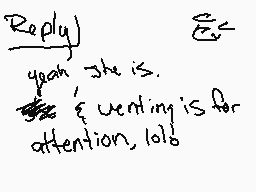 Reply
yeah she is.
& venting is for
attention, lolo